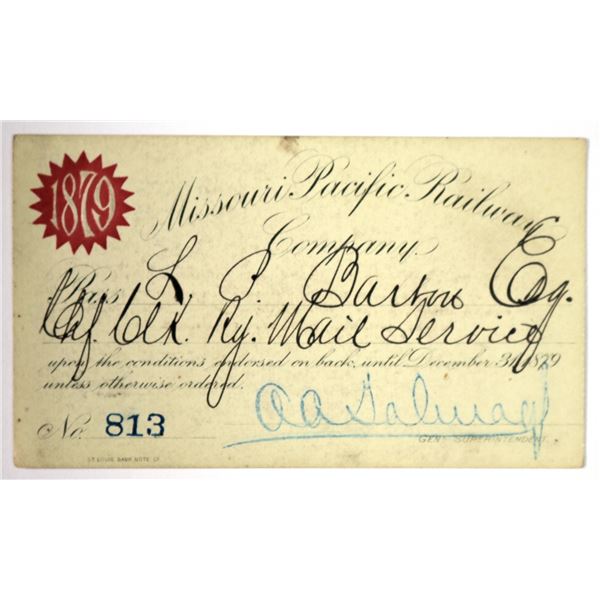 1879
Missouri Pacific Railway
Company
Pass L. J. Barton Esq.
Chf. Clk. Ry. Mail Service
upon the conditions endorsed on back, until December 31, 1879
unless otherwise ordered.
No. 813
A A Talmage
GENL. SUPERINTENDENT.
ST. LOUIS BANK NOTE CO.